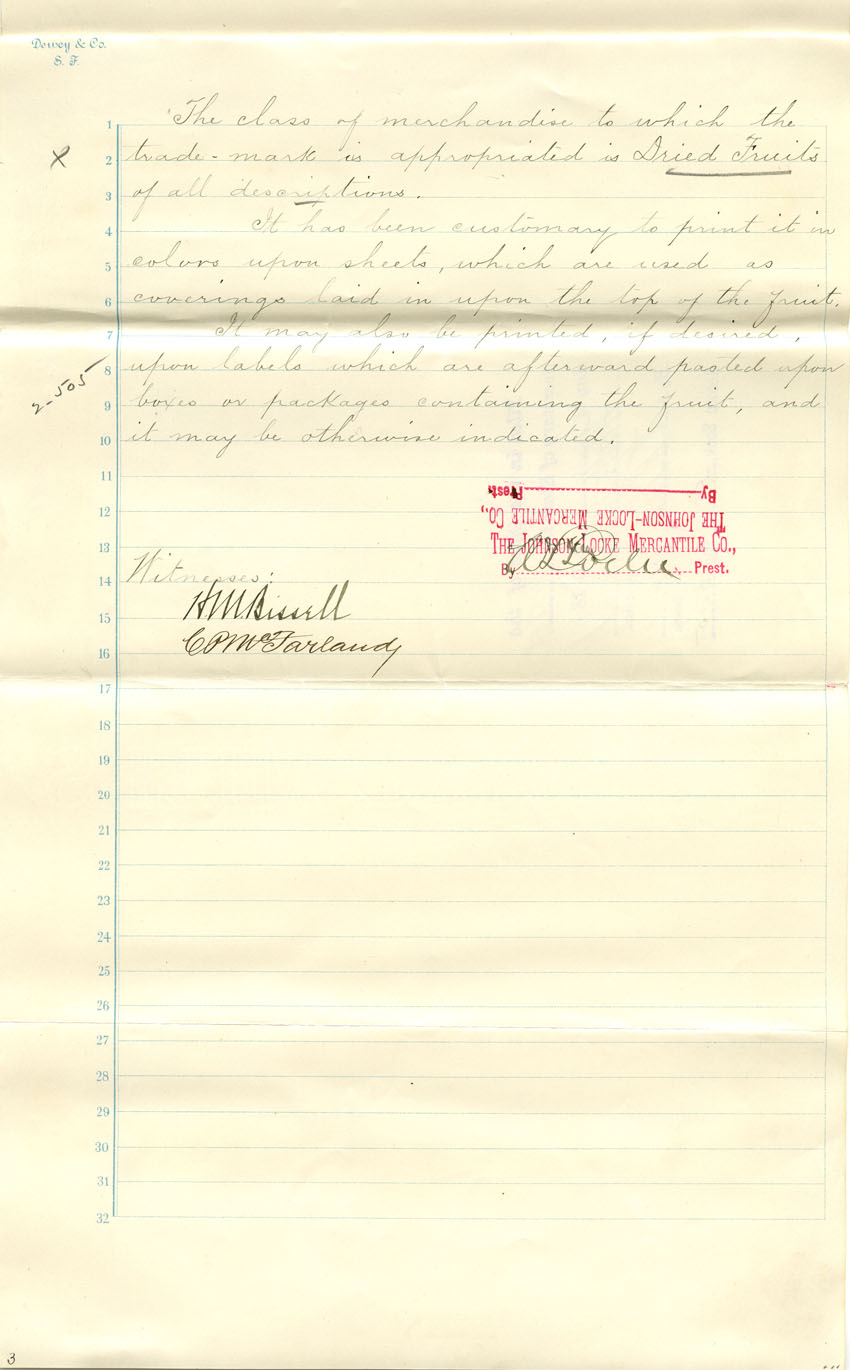 Dewey & Co.
S. F.
1 The class of merchandise to which the
X
2 trade-mark is appropriated is Dried Fruits
3 of all descriptions.
4 It has been customary to print it in
5 colors upon sheets, which are used as
6 coverings laid in upon the top of the fruit.
7 It may also be printed, if desired,
8 upon labels which are afterward pasted upon
2-505
9 boxes or packages containing the fruit, and
10 it may be otherwise indicated.
11
By Prest.
12
THE JOHNSON-LOCKE MERCANTILE CO.,
13
THE JOHNSON-LOCKE MERCANTILE CO.,
14 Witnesses:
By Locke Prest.
15 H M Bissell
16 C P McFarland
17
18
19
20
21
22
23
24
25
26
27
28
29
30
31
32
3